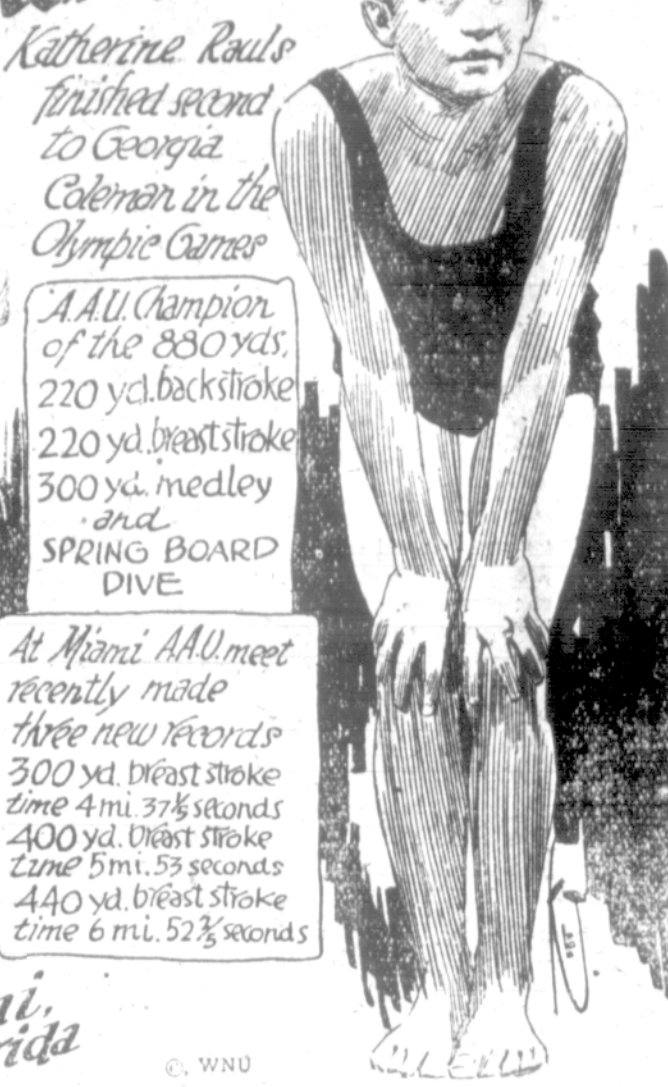 Katherine Rauls
finished second
to Georgia
Coleman in the
Olympic Games
A.A.U. Champion
of the 880 yds.
220 yd. backstroke
220 yd. breast stroke
300 yd. medley
and
SPRING BOARD
DIVE
At Miami A.A.U. meet
recently made
three new records
300 yd. breast stroke
time 4 mi. 37 1/5 seconds
400 yd. breast stroke
time 5 mi. 53 seconds
440 yd. breast stroke
time 6 mi. 52 2/5 seconds
©, WNU